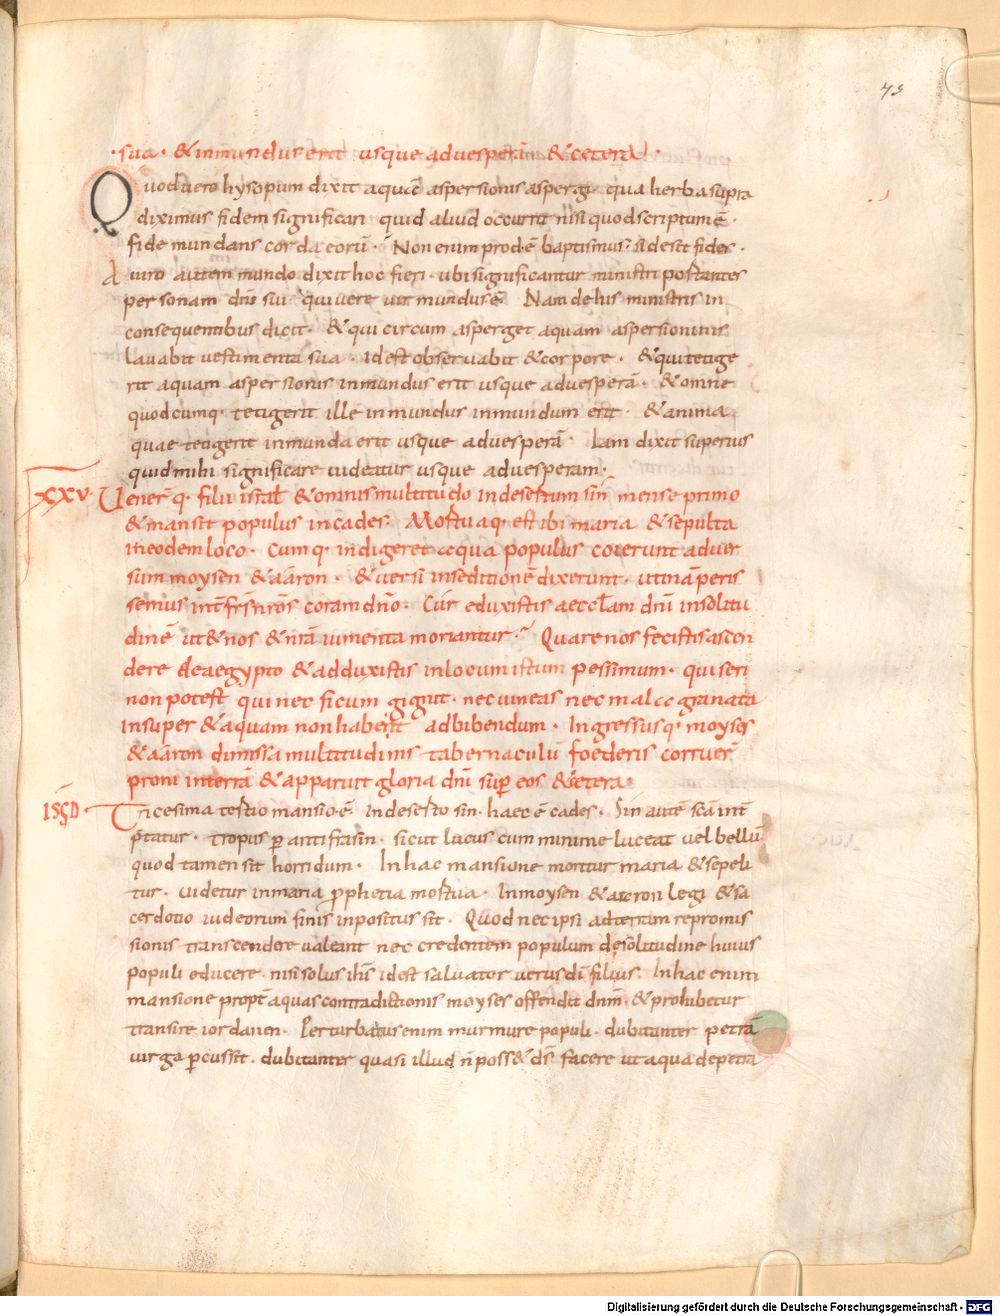 73
· sua · & inmundus erit usque aduesperā & cetera ·
Quod uero hysopum dixit aquae aspersionis aspergi · qua herba supra
diximus fidem significari quid aliud occurrit nisi quod scriptum ē ·
fide mundans corda eorū · Non enim prod ē baptismus · si desit fides ·
A uiro autem mundo dixit hoc fieri · ubi significantur ministri portantes
personam dnī sui · qui uere uir mundus ē · Nam de his ministris in
consequentibus dicit · & qui circum asperget aquam aspersioninis
lauabit uestimenta sua · id est obseruabit & corpore · & qui tetige
rit aquam aspersionis inmundus erit usque aduesperā · & omne
quodcumq· tetigerit ille inmundus inmundum erit · & anima
quae tetigerit inmunda erit usque aduesperā · Iam dixit superius
quid mihi significare uideatur usque aduesperam ·
XXV· Uenerq· filii israł & omnis multitudo in desertum sin mense primo
& mansit populus in cades · Mortuaq· est ibi maria & sepulta
in eodem loco · Cumq· indigeret aqua populus coierunt aduer
sum moysen & aaron · & uersi in seditionē dixerunt · utinā peris
semus int̄ frs̄ nrōs coram dnō · Cur eduxistis aecclam dnī in solitu
dinē ut & nos & nrā iumenta moriantur · Quare nos fecistis ascen
dere de aegypto & adduxistis in locum istum pessimum · qui seri
non potest qui nec ficum gignit · nec uineas nec mala granata
insuper & aquam non habent ad bibendum · Ingressusq· moyses
& aaron dimissa multitudinis tabernaculū foederis corruer̄
proni in terrā & apparuit gloria dnī sup̄ eos & cetera
Tricesima tertio mansio ē · In deserto sin · haec ē cades · Sin autē scā int̄
p̄tatur · tropus p̄ antifrasin · sicut lucus cum minime luceat uel bellū
quod tamen sit horridum · In hac mansione moritur maria & sepeli
tur · uidetur in maria p̄phetia mortua · In moysen & aaron legi & sa
cerdotio iudeorum finis inpositus sit · Quod nec ipsi ad terram repromis
sionis transcendere ualeant nec credentem populum de solitudine huius
populi educere · nisi solus ihs̄ id est saluator uerus dī filius · In hac enim
mansione propt̄ aquas contradictionis moyses offendit dnm̄ · & prohibetur
transire iordanen · Perturbatus enim murmure populi · dubitanter petrā
uirga p̄cussit · dubitanter quasi illud n̄ poss& dˢ facere ut aqua de petra
Digitalisierung gefördert durch die Deutsche Forschungsgemeinschaft · DFG